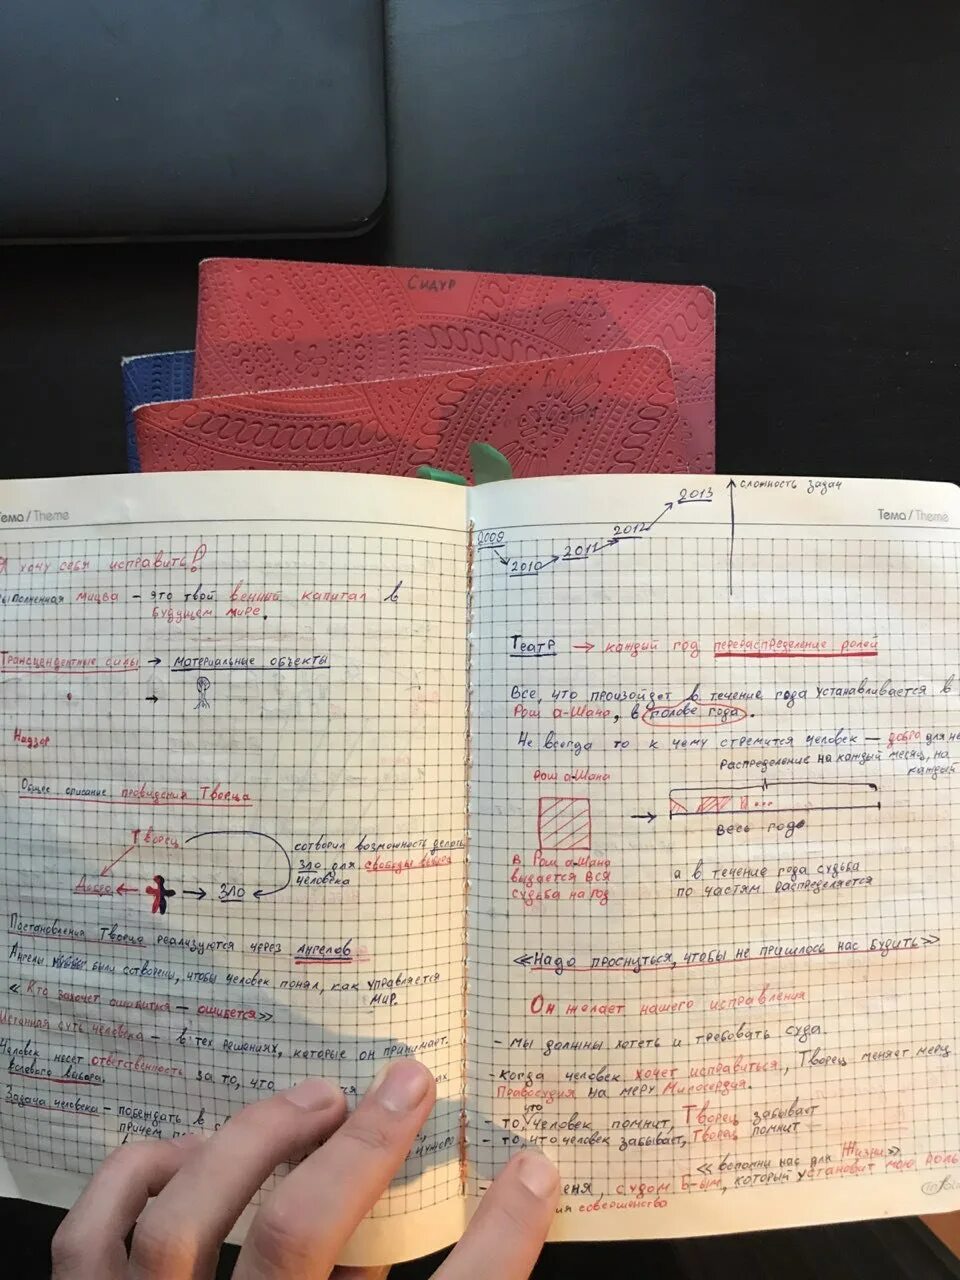 Сидур
Тема / Theme
Я хочу себя исправить!
Выполненная мицва — это твой вечный капитал в
будущем мире.
Трансцендентные силы → материальные объекты
→
Надзор
Общее описание провидения Творца
Творец
сотворил возможность делать
зло для свободы выбора
человека
Добро ← → Зло
Постановления Творца реализуются через Ангелов
Ангелы были сотворены, чтобы человек понял, как управляется
мир.
« Кто захочет ошибиться — ошибется»
Истинная суть человека — в тех решениях, которые он принимает.
Человек несет ответственность за то, что
Задача человека — побеждать в
причем
чужого
2009 2010 2011 2012 2013
сложность задач
Тема / Theme
Театр → каждый год перераспределение ролей
Все, что произойдет в течение года устанавливается в
Рош а-Шана, в голове года.
Не всегда то к чему стремится человек — добро для не
Распределение на каждый месяц, на
каждый
Рош а-Шана
→
весь год
в Рош а-Шана
выдается вся
судьба на год
а в течение года судьба
по частям распределяется
«Надо проснуться, чтобы не пришлось нас будить»
Он желает нашего исправления
- мы должны хотеть и требовать суда.
- когда человек хочет исправиться, Творец меняет меру
Правосудия на меру Милосердия.
- то, что человек помнит, Творец забывает
- то, что человек забывает, Творец помнит
«вспомни нас для Жизни»
еня, судом Б-ым, который установит мою роль
совершенство